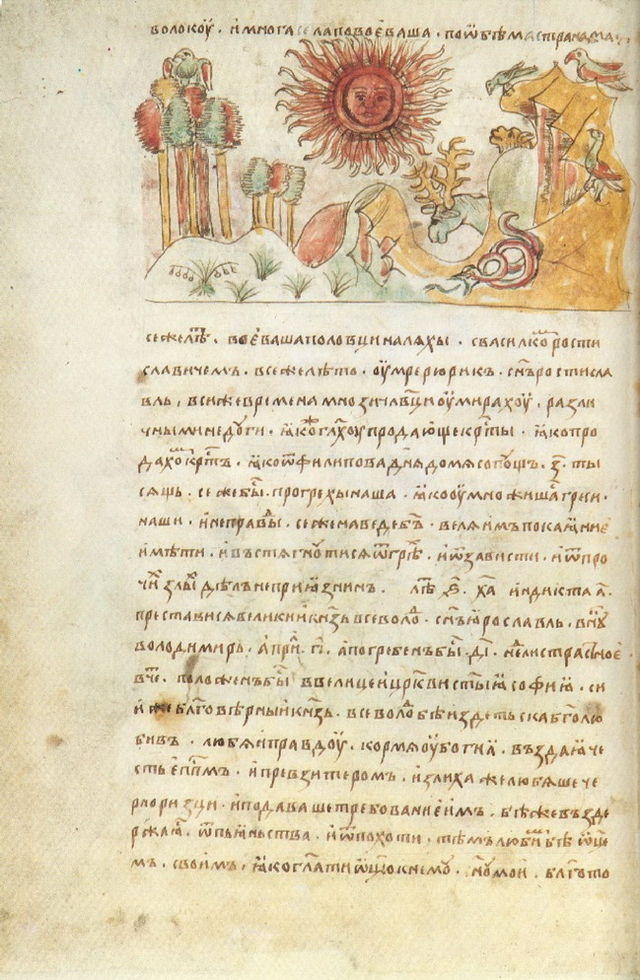 волокоу · и многа села повоеваша · по ѡбѣма странама ·
се же лѣт҇ · воеваша половци наляхы · с василкѡм҇ рости
славичемъ · в се же лѣто · оумре рюрикъ · сн҃ъ ростисла
вль · в сиже времена мнози члв҃ци оумираху · разли
чными недуги · ꙗко гл҃хоу продающе крс҇ты · ꙗко про
дахѡм҇ крс҇тъ · ꙗко ѿ филипова дня до мясопущъ · з҃ · ты
сящь · се же бы҇ · про грехы наша · ꙗко оумножишас҇ греси ·
наши · и неправды · се же наведе бг҃ъ · веля имъ покаꙗние
имѣти · и въстягноутися ѿ грѣх҇ · и ѿ зависти · и ѿ про
чи҇ злы҇ дѣлъ неприꙗзнинъ · лѣт҇ ҂ѕ҃ · х҃а индикта а҃ ·
преставися великии кн҃зь всеволод҇ · сн҃ъ ꙗрославль · вну҇къ
володимирь · апри҇л · г҃і · а погребенъ бы҇ · д҃і · недѣли страсныꙗ ·
в че҇ · положенъ бы҇ в велицеи црк҃ви ст҃ыꙗ софиꙗ · си
и же блг҃овѣрныи кн҃зь · всеволод҇ бѣ издетьска бг҃олю
бивъ · любя правдоу · кормя оубогиꙗ · въздаꙗ че
сть еп҃пмъ · и превзитеромъ · излиха же любяше че
рноризци · и подаваше требование имъ · бѣ же възде
ржаꙗс҇ · ѿ пьꙗньства · и ѿ похоти · тѣмъ любим҇ бѣ ѿц҃е
мъ · своимъ · ꙗко гла҃ти ѿц҃ю к нему · сн҃у мои · благо то